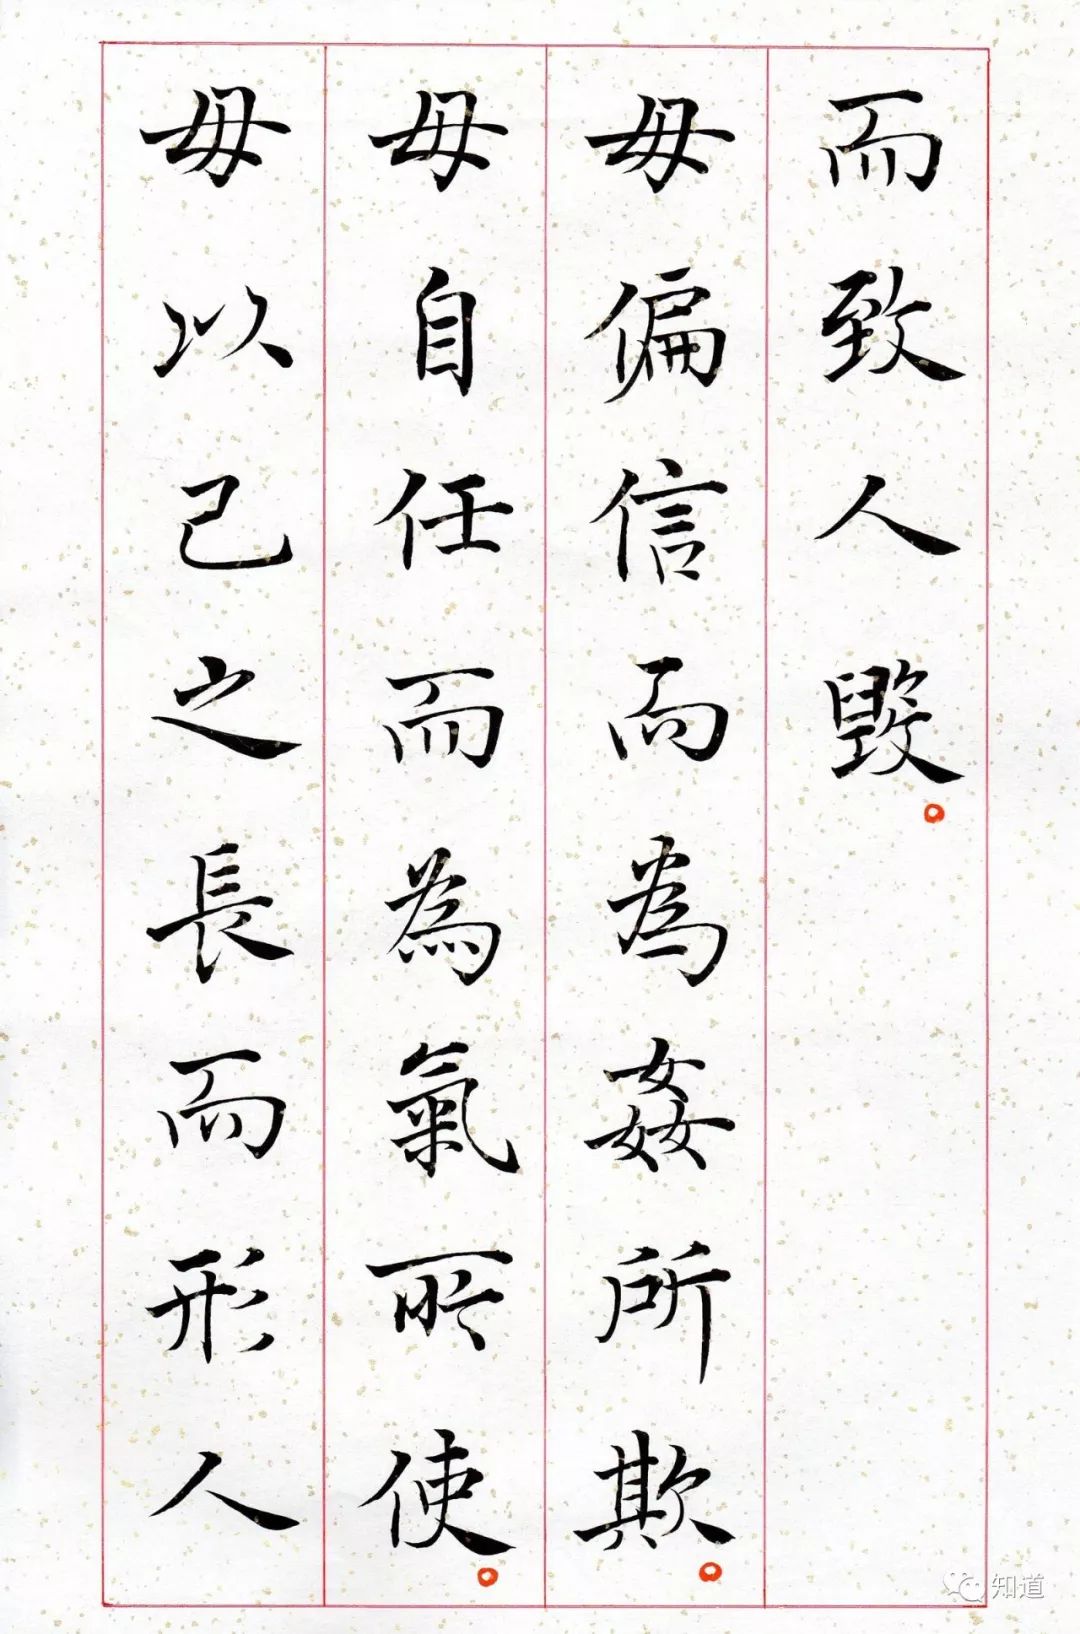 而致人毀。
毋偏信而為姦所欺。
毋自任而為氣所使。
毋以己之長而形人
知道